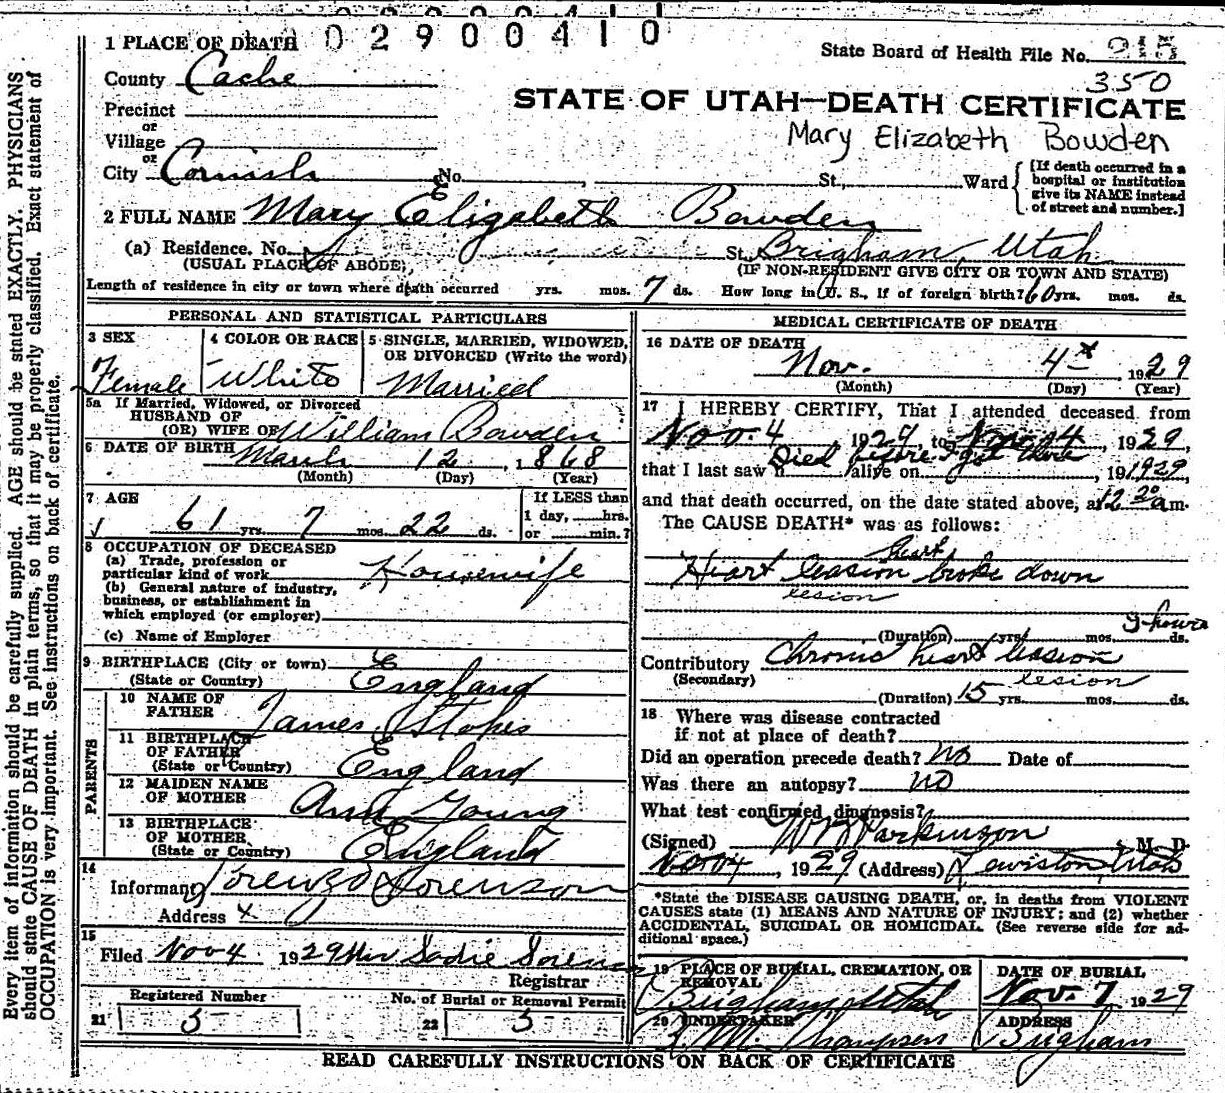 0 2 9 0 0 4 1 0
1 PLACE OF DEATH
State Board of Health File No. 215
350
County Cache
STATE OF UTAH—DEATH CERTIFICATE
Precinct
Mary Elizabeth Bowden
or
Village
or
City Cornish No. St., Ward
[If death occurred in a hospital or institution give its NAME instead of street and number.]
2 FULL NAME Mary Elizabeth Bowden
(a) Residence. No. St. Brigham, Utah
(USUAL PLACE OF ABODE) (IF NON-RESIDENT GIVE CITY OR TOWN AND STATE)
Length of residence in city or town where death occurred yrs. mos. 7 ds. How long in U. S., if of foreign birth? 60 yrs. mos. ds.
PERSONAL AND STATISTICAL PARTICULARS
3 SEX Female
4 COLOR OR RACE White
5 SINGLE, MARRIED, WIDOWED, OR DIVORCED (Write the word) Married
5a If Married, Widowed, or Divorced
HUSBAND OF
(OR) WIFE OF William Bowden
6 DATE OF BIRTH March 12, 1868
(Month) (Day) (Year)
7 AGE 61 yrs. 7 mos. 22 ds.
If LESS than
1 day, hrs.
or min.?
8 OCCUPATION OF DECEASED
(a) Trade, profession or
particular kind of work Housewife
(b) General nature of industry,
business, or establishment in
which employed (or employer)
(c) Name of Employer
9 BIRTHPLACE (City or town)
(State or Country) England
PARENTS
10 NAME OF
FATHER James Stokes
11 BIRTHPLACE
OF FATHER
(State or Country) England
12 MAIDEN NAME
OF MOTHER Ann Young
13 BIRTHPLACE
OF MOTHER
(State or Country) England
14
Informant Lorenzo Sorenson
Address x
15
Filed Nov 4 1929 Mrs Sadie
Registrar
Registered Number
21 5
No. of Burial or Removal Permit
22 5
MEDICAL CERTIFICATE OF DEATH
16 DATE OF DEATH
Nov. 4 1929
(Month) (Day) (Year)
17 I HEREBY CERTIFY, That I attended deceased from
Nov. 4, 1929, to Nov. 4 1929,
Died before I got there
that I last saw h alive on , 191929,
and that death occurred, on the date stated above, at 12 30 a.m.
The CAUSE DEATH* was as follows:
heart
Heart leasion broke down
lesion
9 hours
(Duration) yrs. mos. ds.
Contributory Chronic heart leasion
(Secondary) lesion
(Duration) 15 yrs. mos. ds.
18 Where was disease contracted
if not at place of death?
Did an operation precede death? No Date of
Was there an autopsy? no
What test confirmed diagnosis?
(Signed) Parkinson, M. D.
Nov 4, 1929 (Address) Lewiston, Utah
*State the DISEASE CAUSING DEATH, or, in deaths from VIOLENT
CAUSES state (1) MEANS AND NATURE OF INJURY; and (2) whether
ACCIDENTAL, SUICIDAL OR HOMICIDAL. (See reverse side for ad-
ditional space.)
19 PLACE OF BURIAL, CREMATION, OR
REMOVAL
Brigham, Utah
DATE OF BURIAL
Nov. 7 1929
20 UNDERTAKER
Thompsen
ADDRESS
Brigham
READ CAREFULLY INSTRUCTIONS ON BACK OF CERTIFICATE
Every item of information should be carefully supplied. AGE should be stated EXACTLY. PHYSICIANS
should state CAUSE OF DEATH in plain terms, so that it may be properly classified. Exact statement of
OCCUPATION is very important. See instructions on back of certificate.